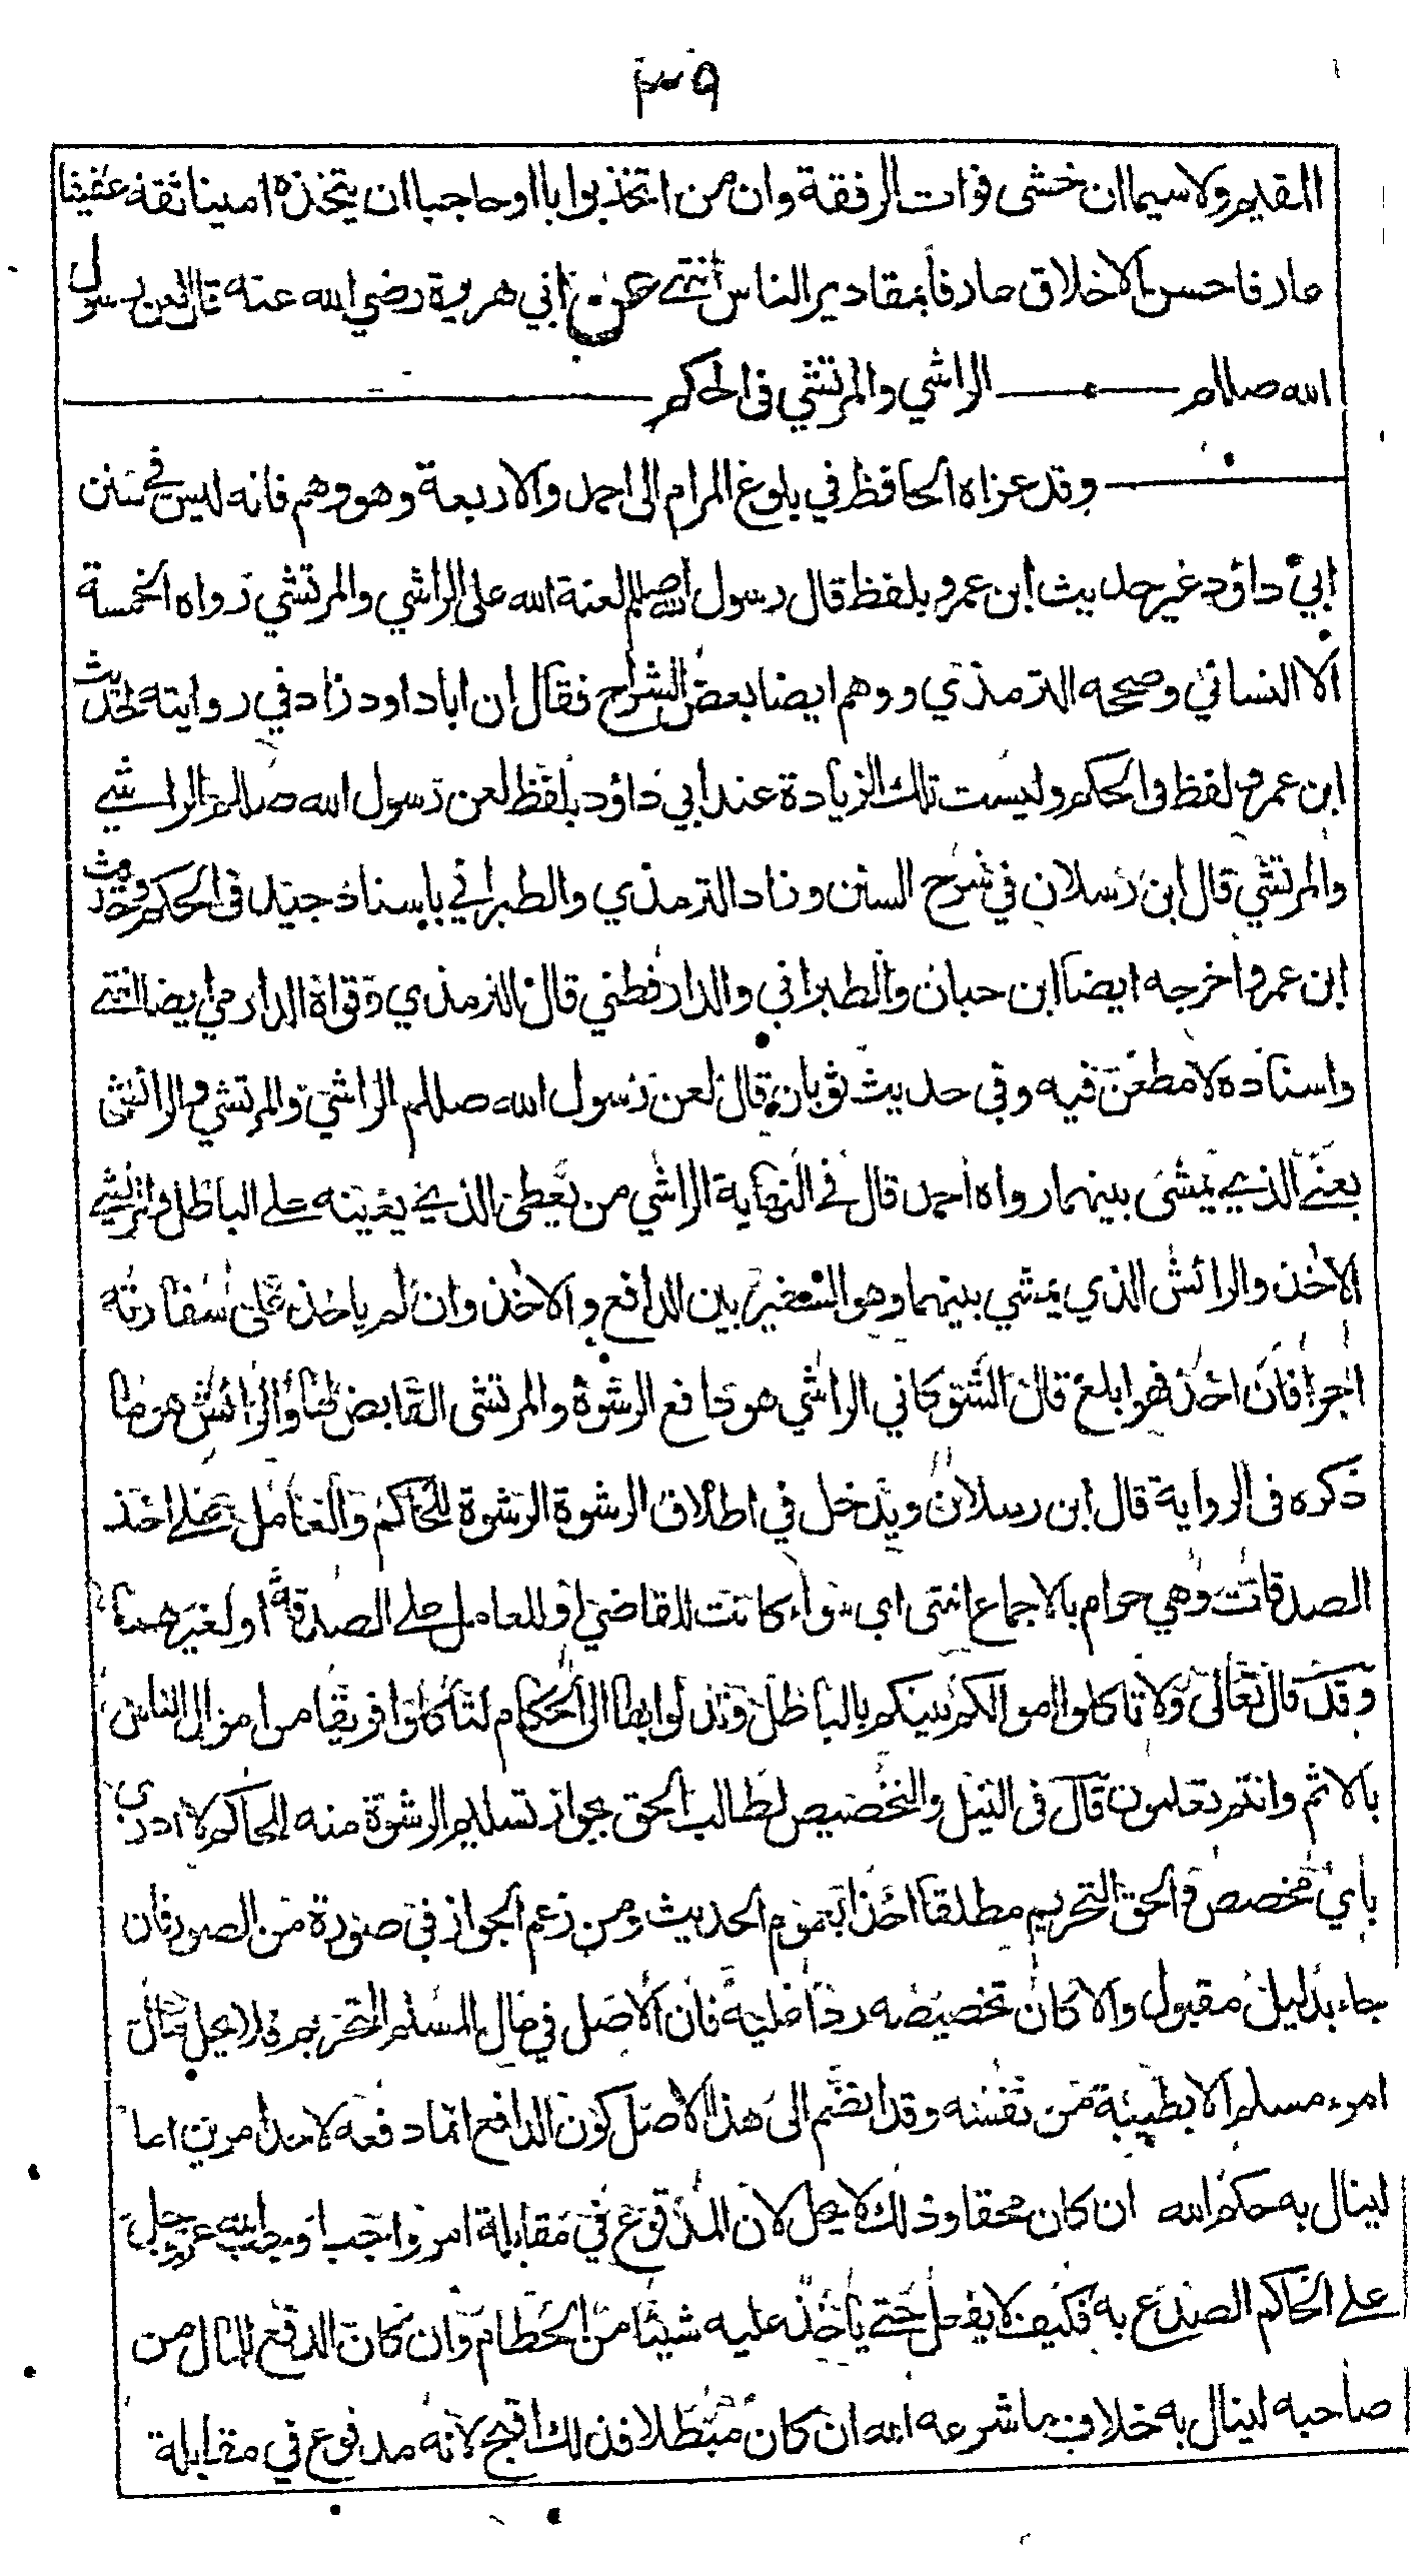 ٣٩
المقيم ولا سيما ان خشى فوات الرفقة وان من اتخذ بوابا او حاجبا ان يتخذه امينا ثقة عفيفا
عارفا حسن الاخلاق عارفا بمقادير الناس انتهى عن ابي هريرة رضي الله عنه قال لعن رسول
الله صللم الراشي والمرتشي في الحكم
وقد عزاه الحافظ في بلوغ المرام الى احمد والاربعة وهو وهم فانه ليس في سنن
ابي داؤد غير حديث ابن عمرو بلفظ قال رسول الله صللم لعنة الله على الراشي والمرتشي رواه الخمسة
الا النسائي وصححه الترمذي ووهم ايضا بعض الشراح فقال ان ابا داود زاد في روايته لحديث
ابن عمرو لفظ في الحكم وليست تلك الزيادة عند ابي داؤد بلفظ لعن رسول الله صللم الراشي
والمرتشي قال ابن رسلان في شرح السنن وزاد الترمذي والطبراني باسناد جيد في الحكم وحديث
ابن عمرو اخرجه ايضا ابن حبان والطبراني والدارقطني قال الترمذي وقواه الدارمي ايضا انتهى
واسناده لا مطعن فيه وفي حديث ثوبان قال لعن رسول الله صللم الراشي والمرتشي والرائش
يعني الذي يمشى بينهما رواه احمد قال في النهاية الراشي من يعطى الذي يعينه على الباطل والمرتشي
الآخذ والرائش الذي يمشي بينهما وهو السفير بين الدافع والآخذ وان لم ياخذ على سفارته
اجرا فان اخذ فهو ابلغ قال الشوكاني الراشي هو دافع الرشوة والمرتشى القابض لها والرائش هو ما
ذكره في الرواية قال ابن رسلان ويدخل في اطلاق الرشوة الرشوة للحاكم والعامل على اخذ
الصدقات وهي حرام بالاجماع انتهى اي سواء كانت للقاضي او للعامل على الصدقة او لغيرهما
وقد قال تعالى ولا تاكلوا اموالكم بينكم بالباطل وتدلوا بها الى الحكام لتاكلوا فريقا من اموال الناس
بالاثم وانتم تعلمون قال في النيل والتخصيص لطالب الحق بجواز تسليم الرشوة منه للحاكم لا ادري
باي مخصص والحق التحريم مطلقا اخذا بعموم الحديث ومن زعم الجواز في صورة من الصور فان
جاء بدليل مقبول والا كان تخصيصه ردا عليه فان الاصل في مال المسلم التحريم ولا يحل مال
امرء مسلم الا بطيبة من نفسه وقد انضم الى هذا الاصل كون الدافع انما دفعه لاحد امرين اما
لينال به حكم الله ان كان محقا وذلك لا يحل لان المدفوع في مقابلة امر واجب اوجب الله عز وجل
على الحاكم الصدع به فكيف لا يفعل حتى ياخذ عليه شيئا من الحطام وان كان الدفع للمال من
صاحبه لينال به خلاف ما شرعه الله ان كان مبطلا فذلك اقبح لانه مدفوع في مقابلة